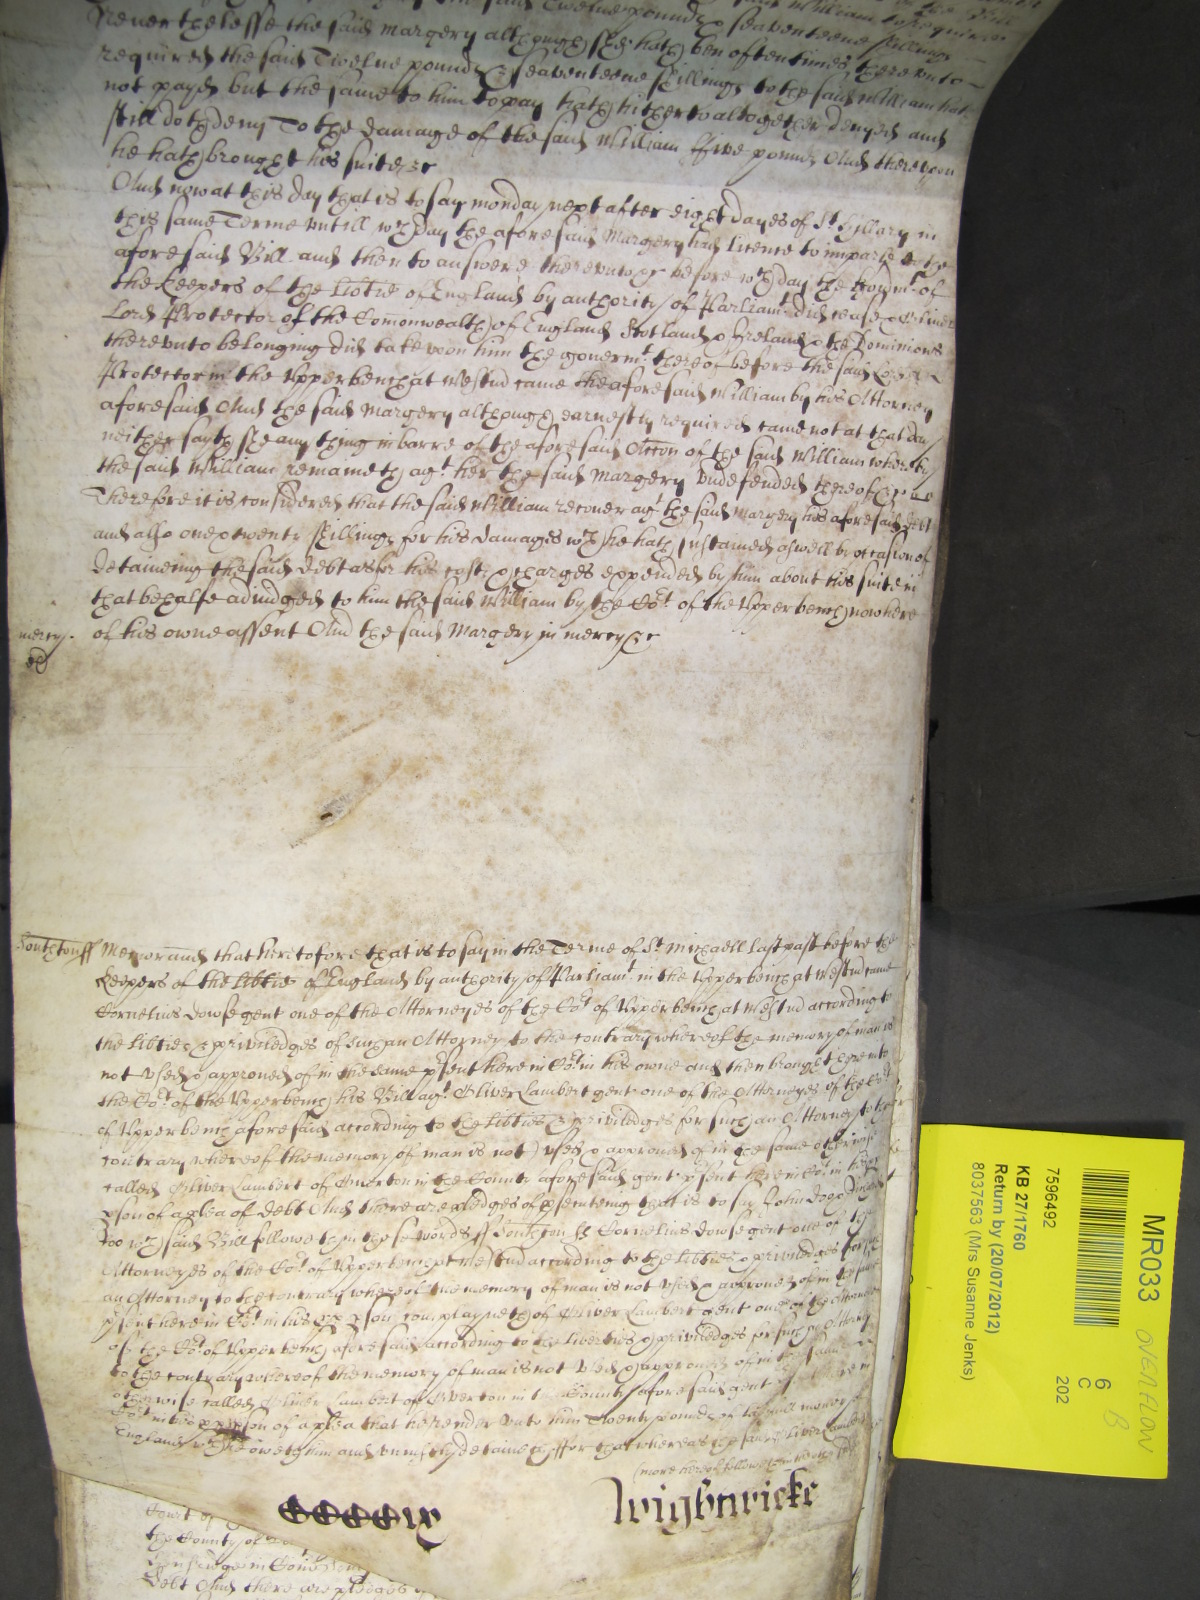 Neverthelesse the said Margery although she hath ben oftentimes thereunto
required the said Twelve pounds & seaventeene shillings to the said William hath
not payd but the same to him to pay hath hitherto altogether denyed and
still doth deny To the damage of the said William ffive pounds And thereupon
he hath brought his suite &c
And now at this day that is to say monday next after eight dayes of St Hillary in
this same Terme untill wch day the aforesaid Margery had licence to imparle to the
aforesaid Bill and then to answere thereunto &c before wch day the govermt of
the keepers of the libtie of England by authority of Parliamt did cease & Oliver
Lord Protector of the Comonwealth of England Scotland & Ireland & the Dominions
thereunto belonging did take upon him the govermt thereof before the said Lord
Protector in the Upper bench at Westm came the aforesaid William by his Attorney
aforesaid And the said Margery although earnestly required came not at that day
neither sayth she any thing in barre of the aforesaid Accon of the said William whereby
the said William remaineth agt her the said Margery undefended thereof
Therefore it is considered that the said William recover agt the said Margery his aforesaid debt
and also one & twenty shillings for his damages wch he hath sustained aswell by occasion of
detaineing the said debt as for his costs & charges expended by him about his suite in
that behalfe adiudged to him the said William by the Cot of the Upper bench now here
of his owne assent And the said Margery in mercy &c
mercy.
Southton ss Memorand that heretofore that is to say in the Terme of St Michaell last past before the
Keepers of the libtie of England by authority of Parliamt in the Upper bench at Westm came
Cornelius Dowse gent one of the Attorneyes of the Cot of Upper bench at Westm according to
the libties & priviledges of such an Attorney to the contrary whereof the memory of man is
not used & approved of in the same psent here in Cot in his owne and then brought here into
the Cot of the Upper bench his Bill agt Oliver Lambert gent one of the Attorneyes of the Cot
of Upper bench aforesaid according to the libties & priviledges for such an Attorney to the
contrary whereof the memory of man is not used & approved of in the same otherwise
called Oliver Lambert of Overton in the County aforesaid gent psent here in Cot in his
pson of a plea of debt And there are pledges of psenteing that is to say John Doe &
Roo wch said Bill followeth in these words ss Southton ss Cornelius Dowse gent one of the
Attorneyes of the Cot of Upper bench at Westm according to the libties & priviledges for such
an Attorney to the contrary whereof the memory of man is not used & approved of in the same
psent here in Cot in his pson complayneth of Oliver Lambert gent one of the Attorneyes
of the Cot of Upper bench aforesaid according to the liberties & priviledges for such an Attorney
to the contrary whereof the memory of man is not used & approved of in the same
otherwise called Oliver Lambert of Overton in the County aforesaid gent psent here in
Cot in his pson of a plea that he render unto him Twenty pounds of lawfull money of
England wch he oweth him and uniustly detaineth ffor that whereas the said Oliver Lambert
(more hereof followeth in the
Wightwicke
Court of
the County of
Debt And there are pledges
MR033
OVERFLOW
B
6
C
202
7596492
KB 27/1760
Return by (20/07/2012)
8037563 (Mrs Susanne Jenks)